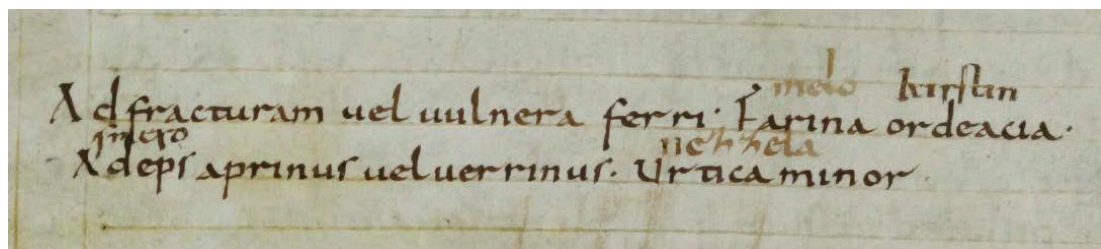 melo kirstin
Ad fracturam vel vulnera ferri· Farina ordeacia·
smero nezzela
Adeps aprinus vel verrinus· Urtica minor